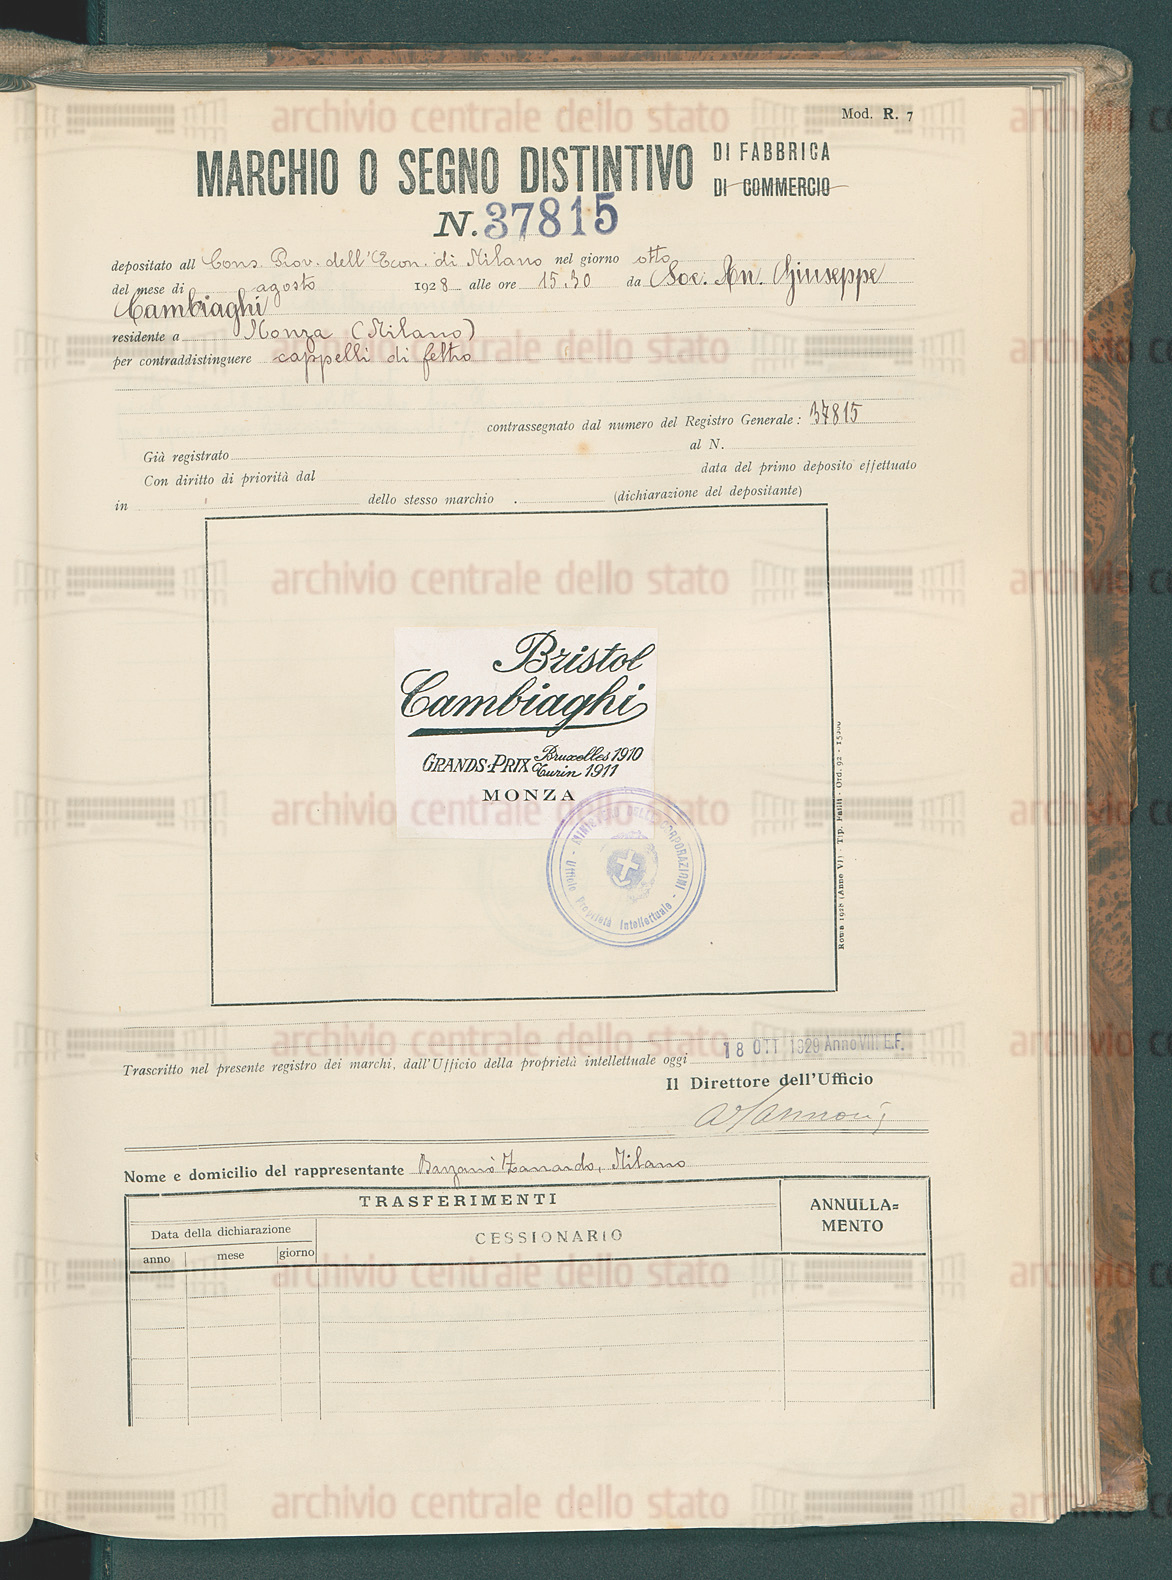 Mod. R. 7
MARCHIO O SEGNO DISTINTIVO DI FABBRICA
DI COMMERCIO
N. 37815
depositato all Cons. Prov. dell'Econ. di Milano nel giorno otto
del mese di agosto 1928 alle ore 15.30 da Soc. An. Giuseppe
Cambiaghi
residente a Monza (Milano)
per contraddistinguere cappelli di feltro
contrassegnato dal numero del Registro Generale: 37815
Già registrato al N.
Con diritto di priorità dal data del primo deposito effettuato
in dello stesso marchio . (dichiarazione del depositante)
Bristol
Cambiaghi
GRANDS-PRIX Bruxelles 1910
Turin 1911
MONZA
MINISTERO DELLE CORPORAZIONI
- Ufficio Proprietà Intellettuale -
Roma 1928 (Anno VI) - Tip. Failli - Ord. 92 -
Trascritto nel presente registro dei marchi, dall'Ufficio della proprietà intellettuale oggi 18 OTT 1929 Anno VIII E.F.
Il Direttore dell'Ufficio
Nome e domicilio del rappresentante Barzanò Zanardo, Milano
TRASFERIMENTI
ANNULLA=
MENTO
Data della dichiarazione
CESSIONARIO
anno mese giorno
archivio centrale dello stato